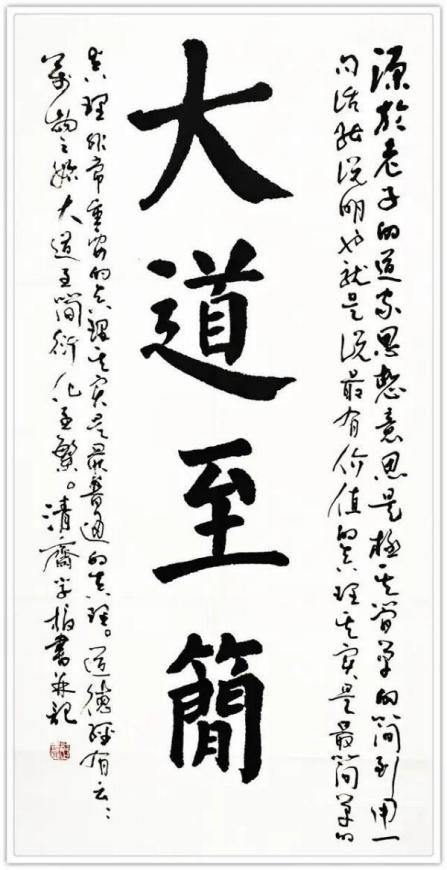 大道至簡
源於老子的道家思想意思是極其簡單的簡到用一
句話能説明也就是説最有价值的真理其實是最簡單的
真理非常重要的真理其實是最普通的真理。道德經有云：
萬物之始大道至簡衍化至繁。清齋柏書並記